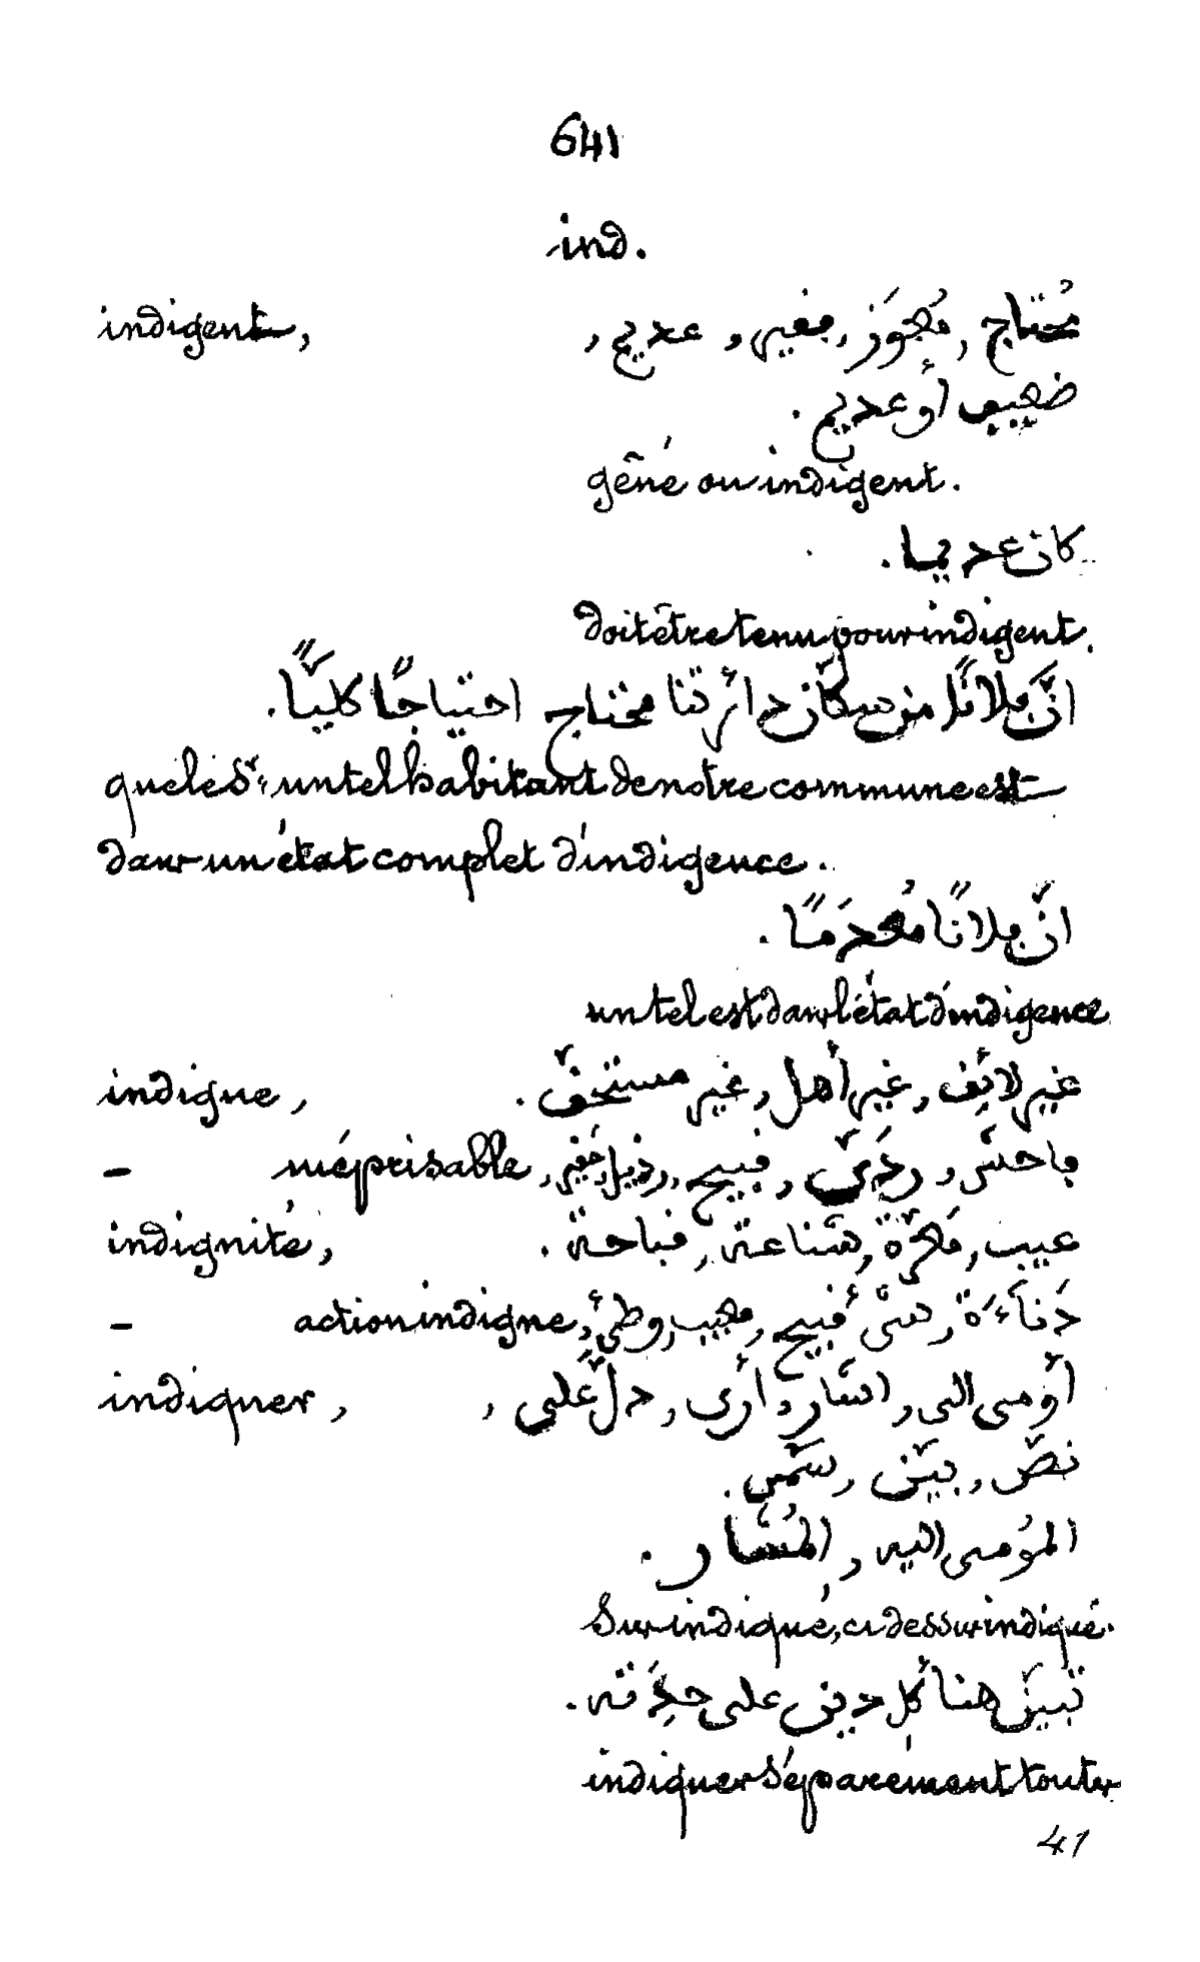 641
ind.
indigent, مُحتاج, مُعْوَز, فقير, عديم,
ضعيف أو عديم.
gêné ou indigent.
كان عديما.
doit être tenu pour indigent.
انّ فلانًا من سكّان دائرتنا محتاج احتياجًا كليًّا.
que le sr. un tel habitant de notre commune est
dans un état complet d'indigence.
انّ فلانًا مُعدَمًا.
un tel est dans l'état d'indigence
indigne, غير لائق, غير أهل, غير مستحقّ.
– méprisable, فاحش, رديّ, قبيح, رذيل, حقير
indignité, عيب, مَعَرّة, شناعة, قباحة.
– action indigne, دَنآءَة, شىء قبيح, معيب, وطىء
indiquer, أومى الى, اشار, أرى, دلّ على,
نصّ, بيّن, سمّى.
المُومى اليه, المُشار.
Sus indiqué, ci dessus indiqué.
تبيّن هنا كل دين على حِدَته.
indiquer séparément toutes
41